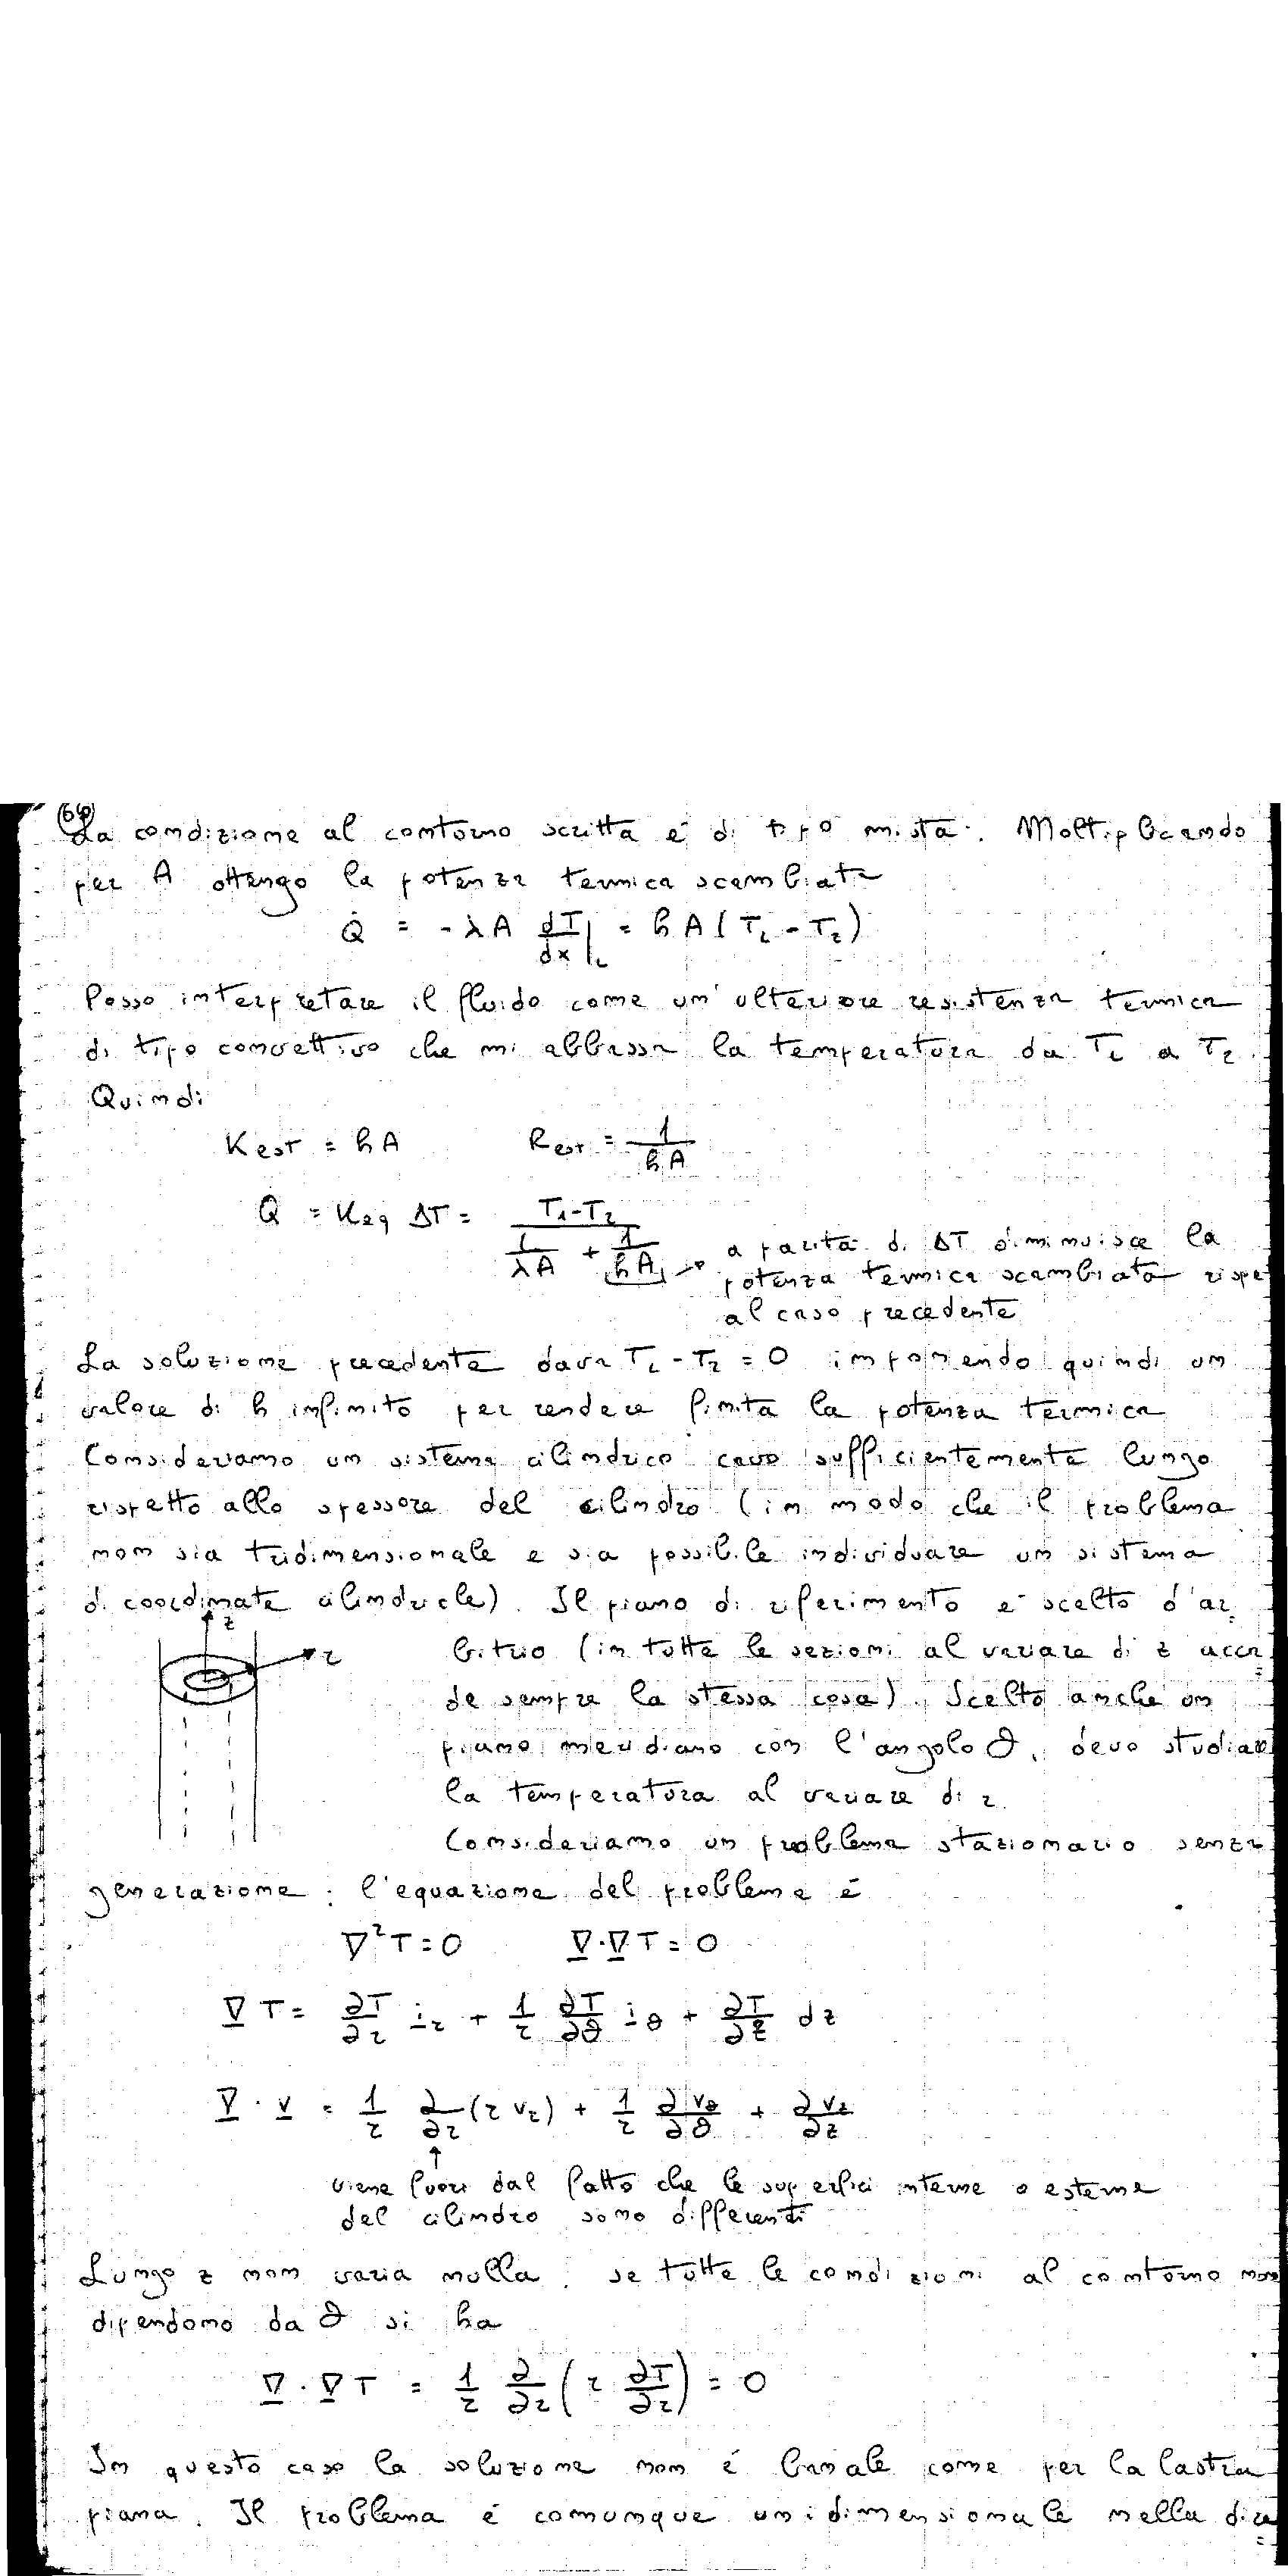 (64)
La condizione al contorno scritta è di tipo mista. Moltiplicando
per A ottengo la potenza termica scambiata
Q̇ = -λA dT/dx|L = hA(TL - T2)
Posso interpretare il fluido come un' ulteriore resistenza termica
di tipo convettivo che mi abbassa la temperatura da TL a T2.
Quindi
Kest = hA Rest = 1/hA
Q̇ = Keq ΔT = (T1-T2)/(L/λA + 1/hA) → a parità di ΔT diminuisce la
potenza termica scambiata rispe
al caso precedente
La soluzione precedente dava TL - T2 = 0 imponendo quindi un
valore di h infinito per rendere finita la potenza termica
Consideriamo un sistema cilindrico cavo sufficientemente lungo
rispetto allo spessore del cilindro (in modo che il problema
non sia tridimensionale e sia possibile individuare un sistema
di coordinate cilindriche). Il piano di riferimento è scelto d'ar
z
r
bitrio (in tutte le sezioni al variare di z acca
de sempre la stessa cosa). Scelto anche un
piano meridiano con l'angolo ϑ, devo studiare
la temperatura al variare di r.
Consideriamo un problema stazionario senza
generazione: l'equazione del problema è
∇²T = 0 ∇·∇T = 0
∇T = ∂T/∂r ir + 1/r ∂T/∂ϑ iϑ + ∂T/∂z dz
∇·v = 1/r ∂/∂r (r vr) + 1/r ∂vϑ/∂ϑ + ∂vz/∂z
↑
viene fuori dal fatto che le superfici interne o esterne
del cilindro sono differenti
Lungo z non varia nulla, se tutte le condizioni al contorno non
dipendono da ϑ si ha
∇·∇T = 1/r ∂/∂r (r ∂T/∂r) = 0
In questo caso la soluzione non è banale come per la lastra
piana. Il problema è comunque unidimensionale nella dire